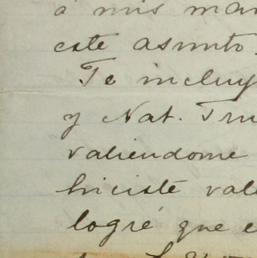 á mis man
este asunto.
Te incluy
y Nat. Tru
valiendome
hiciste vale
logré que e